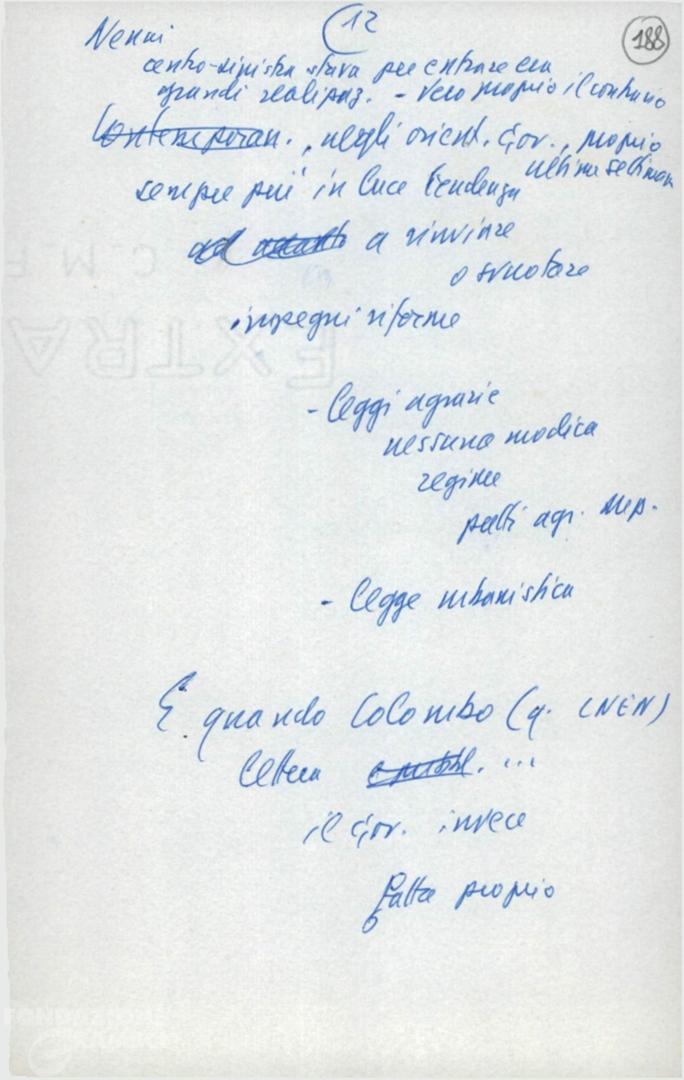 12
188
Nenni
centro-sinistra stava per entrare era
grandi realizzaz. - vero proprio il contrario
Contemporan., negli orient. Gov., proprio
ultime settiman
sempre più in luce tendenza
ad a rinviare
o svuotare
impegni riforme
- leggi agrarie
nessuna modica
regime
patti agr.
- legge urbanistica
E quando Colombo (q. CNEN)
lettera ...
il Gov. invece
fatta proprio
FONDAZIONE
GRAMSCI
EXTRA